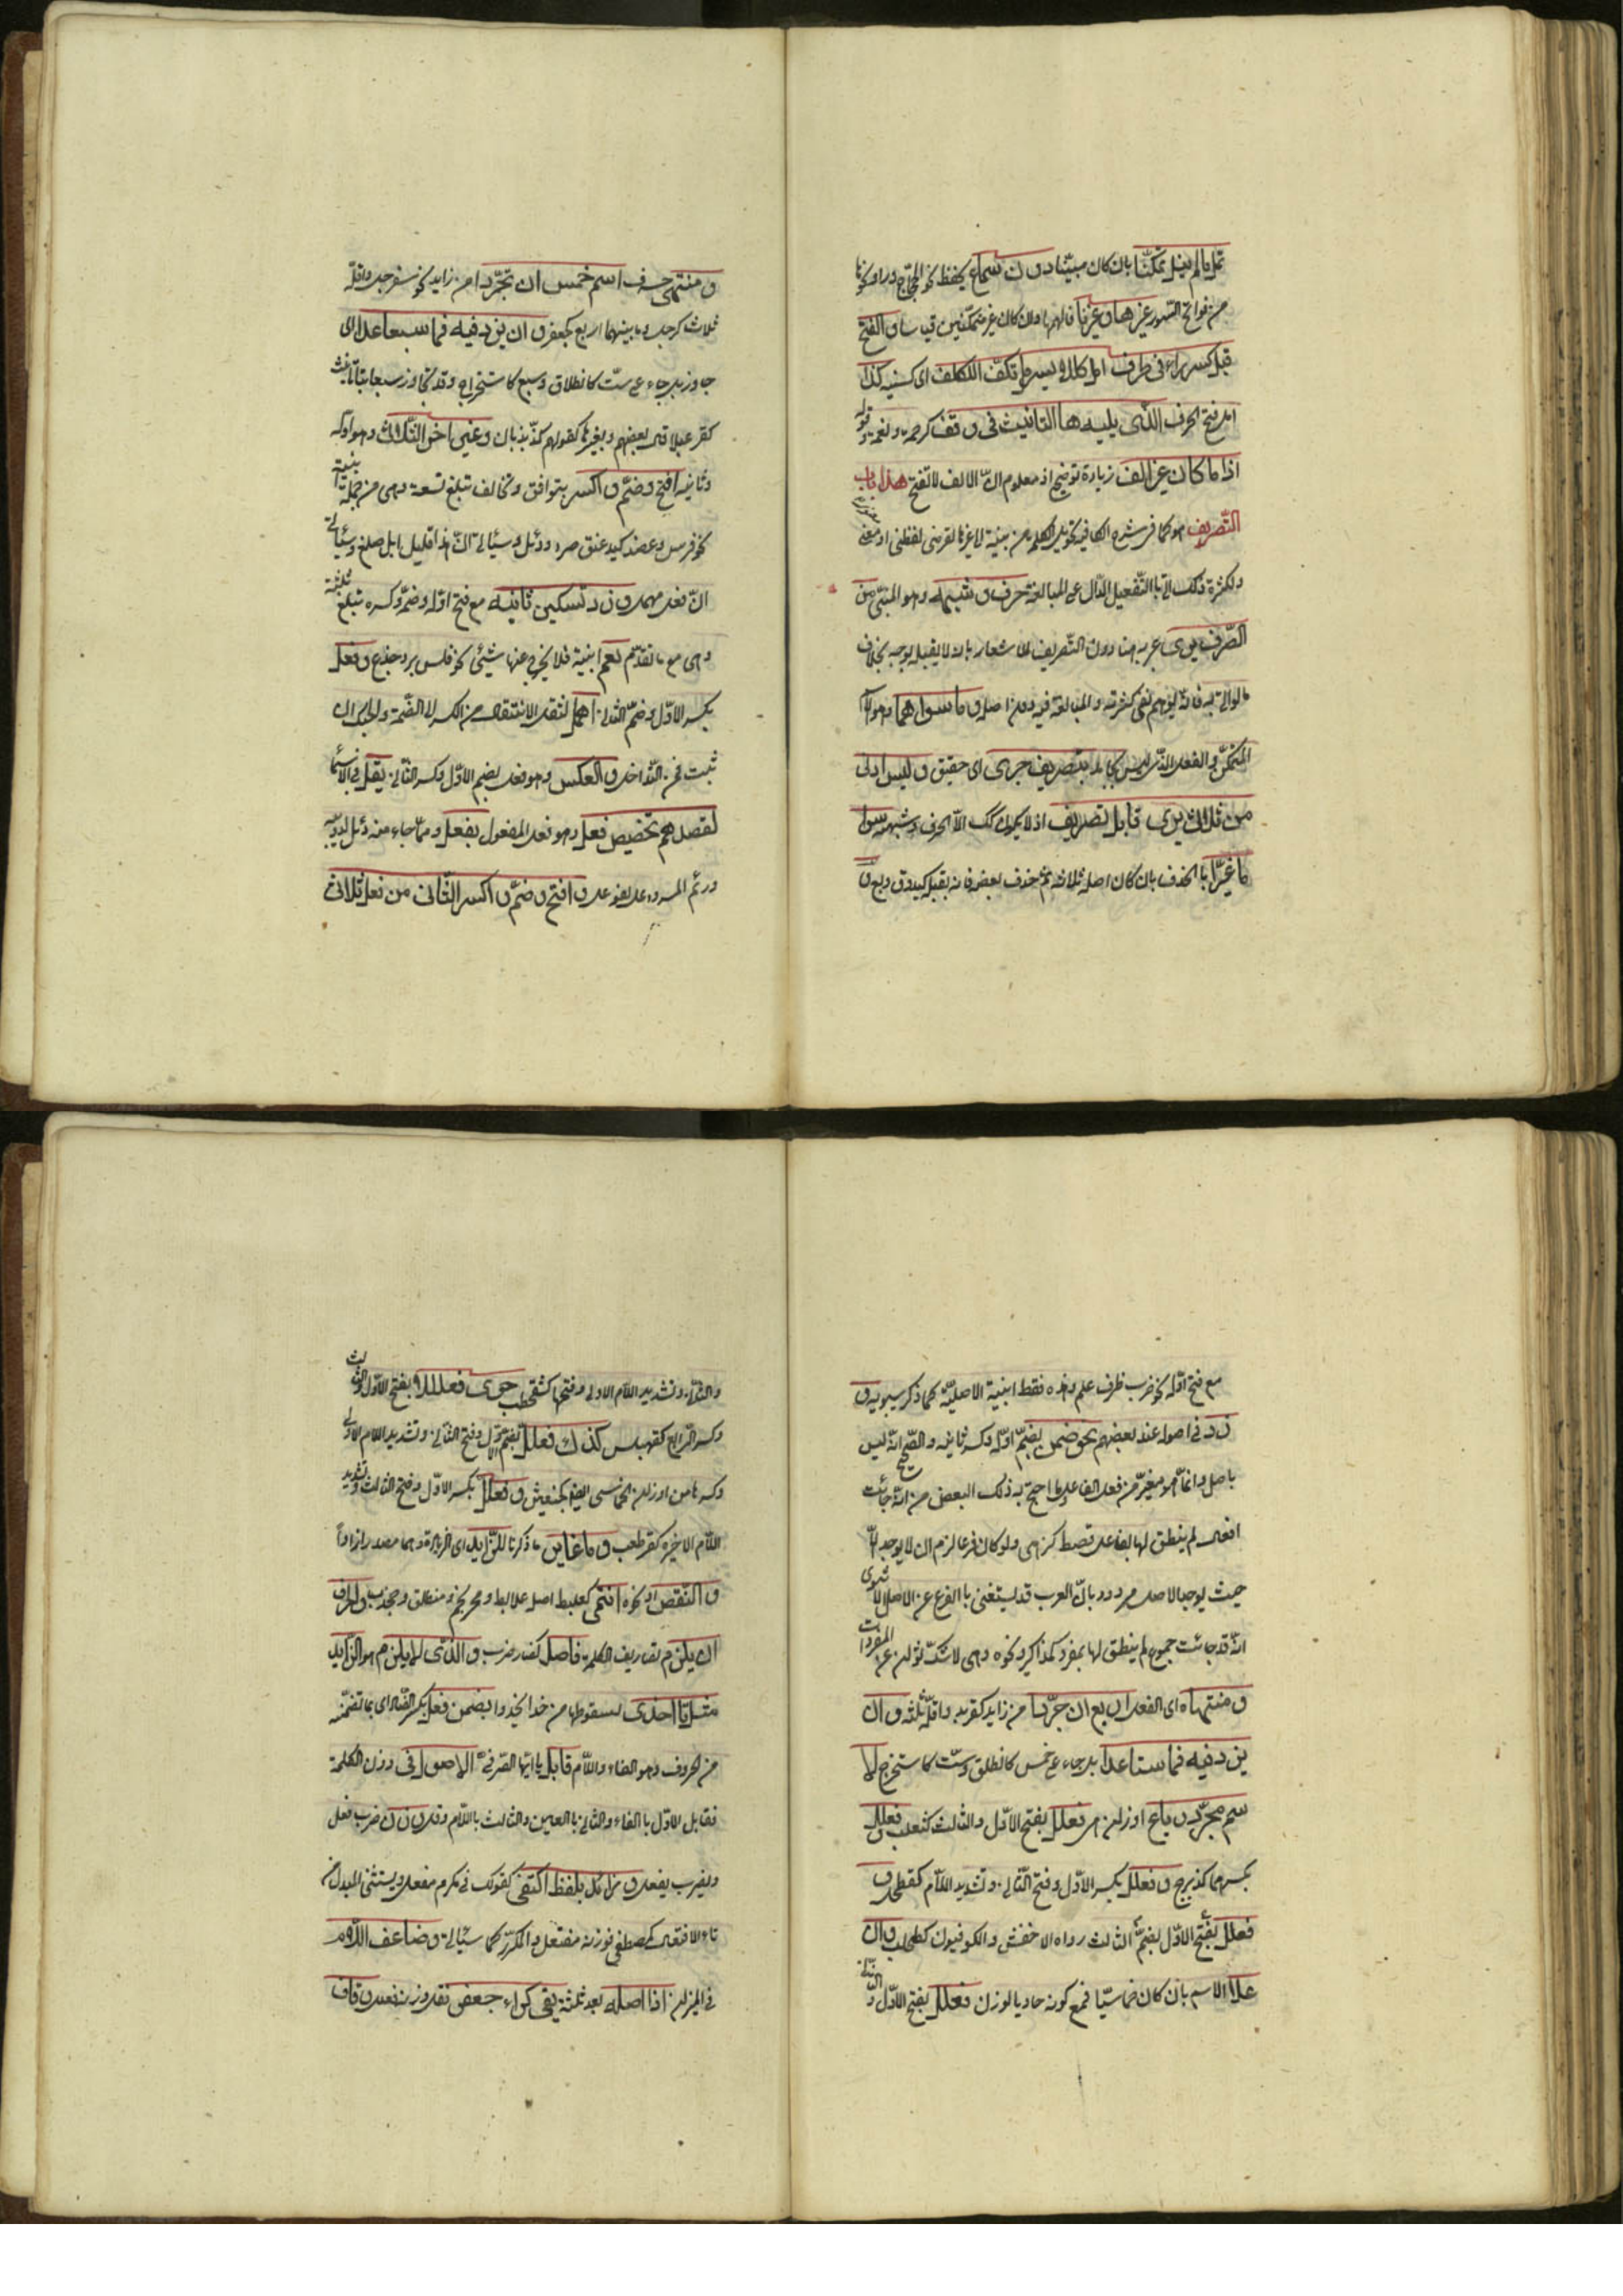 تمل ما لم ينل تمكنا بان كان مبنيا دون سماع يحفظ نحو الحجاج و را و نحوها
من فواتح السور غير ها و غير نا فانهما و ان كان غير متمكنين قياسا و الفتح
قبل كسر راء في طرف امل كللايسر مل تكف الكلف اى كسنيه كذا
امل فتح الحرف الذى يليه ها التانيث فى وقف كرحمة و نعمة و قوله
اذا ما كان غير الف زيادة توضيح اذ معلوم ان الالف لا تفتح هذا باب
التصريف هو كما فى شرح الكافية تحويل الكلمة من بنية لا غيرها لغرض لفظى او معنوى
و لكثرة ذلك اتى بالتفعيل الدال على المبالغة حرف و شبهه و هو المبنى من
الصرف برى عبر به هنا دون التصريف للاشعار بانه لا يقبله بوجه بخلاف
ما لو اتى به فانه يوهم نفى كثرته و المبالغة فيه دون اصله و ما سواهما و هو الاسم
المتمكن و الفعل الذى ليس بجامد بتصريف حرى اى حقيق و ليس ادنى
من ثلاثى يرى قابل تصريف اذ لا يكون كذلك الا الحرف و شبهه سوى
ما غيرا بالحذف بان كان اصله ثلاثة ثم حذف بعضه فانه يقبله كيد و ق و بع و
و منتهى حرف اسم خمس ان تجردا من زايد نحو سفرجل و اقله
ثلاث كرجل و ما بينهما اربع كجعفر و ان يزد فيه فما سبعا عدا اى
جاوز بل جاء على ست كانطلاق و سبع كاستخراج و قد تجاوز سبعا بتا تانيث
كقرعبلانة قال بعضهم و بغيرها كقولهم كذبذبان و غير آخر الثلاثى و هو اوله
و ثانيه افتح و ضم و اكسر بتوافق و تخالف تبلغ تسعة و هى من جملة ابنيته
نحو فرس و عضد كبد عنق صرد و دئل و سياتى ان هذا قليل ابل ضلع و سياتى
ان فعل مهمل و زد تسكين ثانيه مع فتح اوله و ضمه و كسره تبلغ ثلثة
و هى مع ما تقدم تعم ابنية فلا يخرج عنها شيئى نحو فلس برد جذع و فعل
بكسر الاول و ضم الثانى اهمل لثقل الانتقال من الكسر الى الضمة و الحبك ان
ثبت فمن التداخل و العكس و هو فعل بضم الاول و كسر الثانى يقل فى الاسماء
لقصدهم تخصيص فعل و هو فعل المفعول بفعل و مما جاء منه دئل لدويبة
و رئم للسه و عل للوعل و افتح و ضم و اكسر الثانى من فعل ثلاثى
مع فتح اوله نحو ضرب ظرف علم و هذه فقط ابنية الاصلية كما ذكر سيبويه و
زد فى اصوله عند بعضهم نحو ضمن بضم اوله و كسر ثانيه و الصحيح انه ليس
باصل و انما هو مغير من فعل الفاعل و ما احتج به ذلك البعض من انه جائت
افعال لم ينطق لها بفاعل قط كزهى و لو كان فرعا لزم ان لا يوجد الا
حيث يوجد الاصل مردود بان العرب قد يستغنى بالفرع عن الاصل الا ترى
انه قد جائت جموع لم ينطق لها بمفرد كمذاكير و نحوه و هى لا شك ثوان عن المفردات
و منتهاه اى الفعل اربع ان جردا من زايد كقربد و اقله ثلثة و ان
يزد فيه فما ستا عدا بل جاء على خمس كانطلق و ست كاستخرج لا
سم مجرد رباع اوزان هى فعلل بفتح الاول و الثالث كثعلب و فعلل
بكسرهما كذبرج و فعلل بكسر الاول و فتح الثانى و تشديد اللام كقطحل و
فعلل بفتح الاول بضم الثالث رواه الاخفش و الكوفيون كطحلب و ان
علا الاسم بان كان خماسيا فمع كونه حاويا لوزن فعلل بفتح الاول و الثانى
و الثانى و تشديد اللام الاولى و فتحها كشقحطب حوى فعللا بفتح الاول و الثالث
و كسر الرابع كقهبلس كذاك فعلل بضم الاول و فتح الثانى و تشديد اللام الاولى
و كسرها من اوزان الخماسى ايضا كخبعثن و فعلل بكسر الاول و فتح الثالث و تشديد
اللام الاخيرة كقرطعب و ما غاير ما ذكرنا للزايد اى الزيادة و هما مصدرا زاد
و النقص او نحوه انتمى كعلبط اصله علابط و محرنجم و منطلق و جخدب و الحرف
ان يلزم تصاريف الكلمة فاصل كضاد ضرب و الذى لا يلزم هو الزايد
مثل تا احتذى لسقوطها من حذا يحذو بضمن فعل بكسر الضاد اى بما تضمنه
من الحروف و هو الفاء و اللام قابل يا ايها الصرفى الاصول فى وزن الكلمة
فقابل الاول بالفاء و الثانى بالعين و الثالث باللام و قل وزن ضرب فعل
و يضرب يفعل و زائد بلفظه اكتفى كقولك فى مكرم مفعل و يستثنى المبدل من
تاء الافتعال كمصطفى فوزنه مفتعل و المكرر كما سياتى و ضاعف اللام
فى الميزان اذا اصل بعد ثلثة بقى كراء جعفر فقل وزنه فعلل و قاف